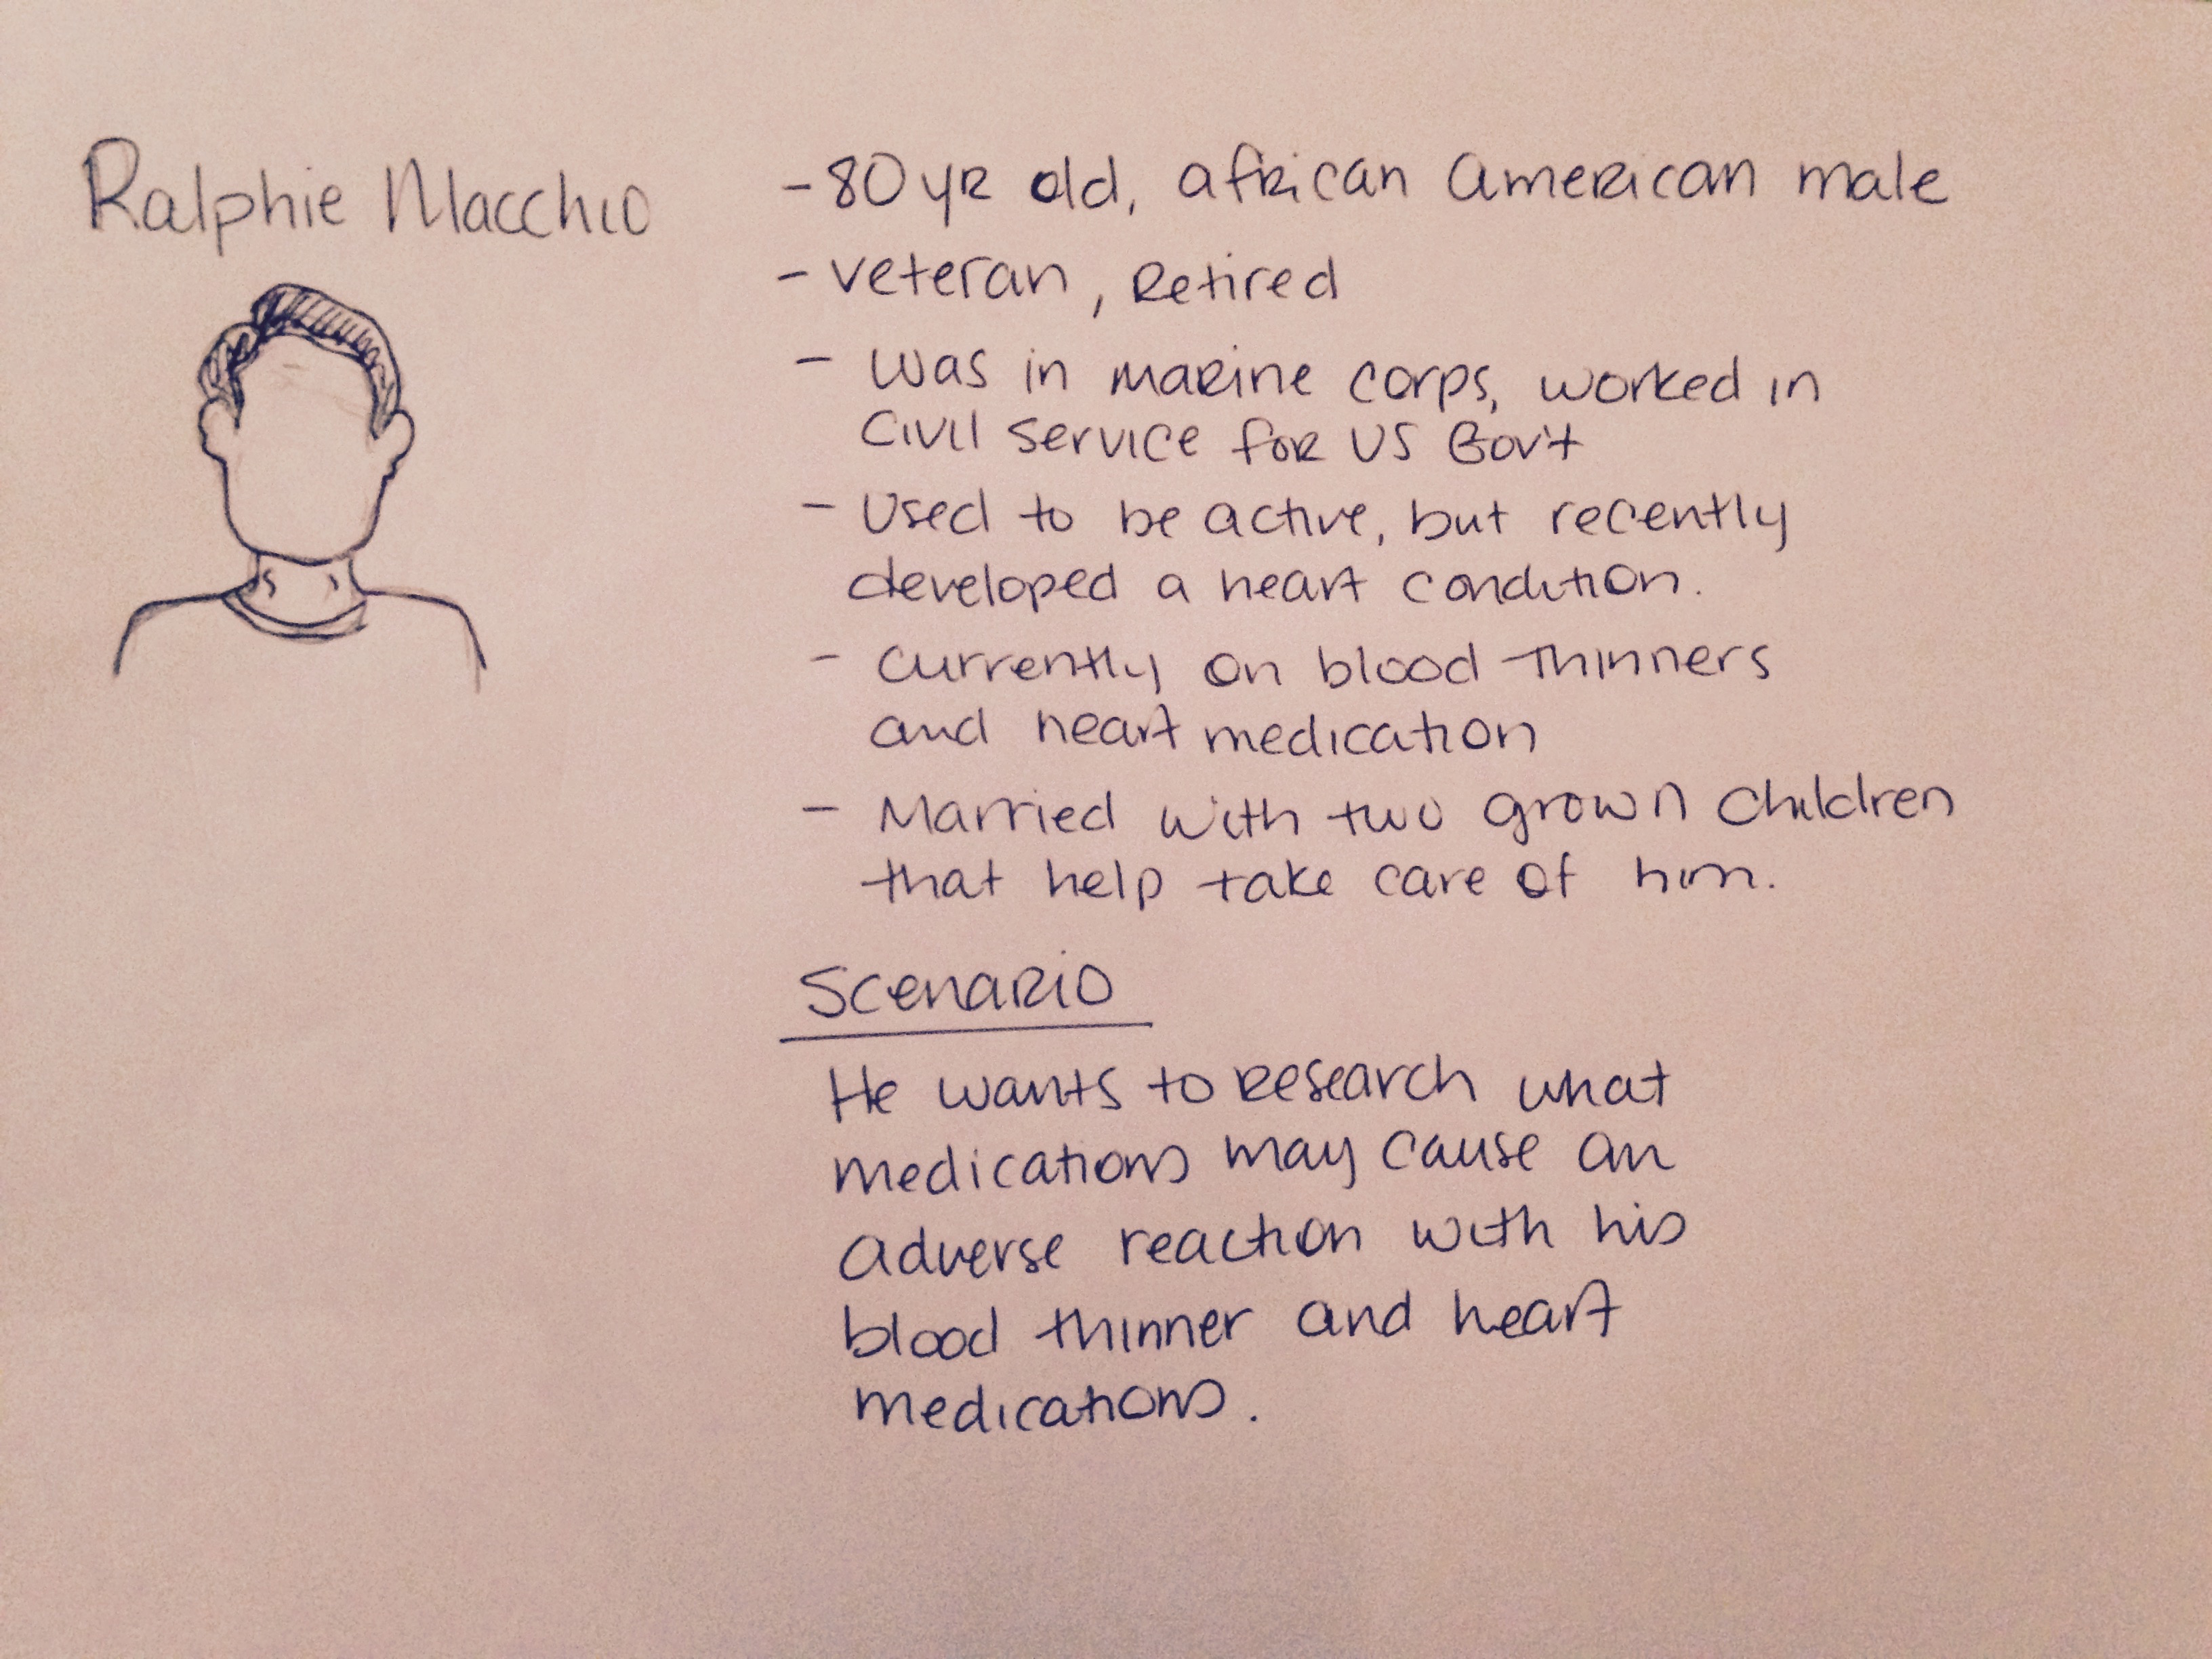 Ralphie Macchio
- 80 yr old, african american male
- veteran, Retired
- was in marine corps, worked in
civil service for US Gov't
- Used to be active, but recently
developed a heart condition.
- currently on blood thinners
and heart medication
- Married with two grown children
that help take care of him.
Scenario
He wants to research what
medications may cause an
adverse reaction with his
blood thinner and heart
medications.